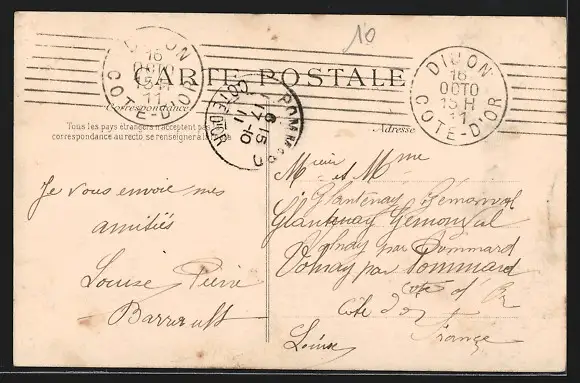 10
DIJON
16
OCTO
15 H
11
COTE-D'OR
DIJON
16
OCTO
15 H
11
COTE-D'OR
CARTE POSTALE
POMMARD
6 15
17 -10
11
COTE D'OR
Correspondance
Tous les pays étrangers n'acceptent pas
correspondance au recto, se renseigner à la
Adresse
Je vous envoie mes
amitiés
Louise Pierre
et Mme
Glantenay
Glantenay
Volnay par Pommard
Volnay par Pommard
Côte d'Or
Côte d'or
France
Louise